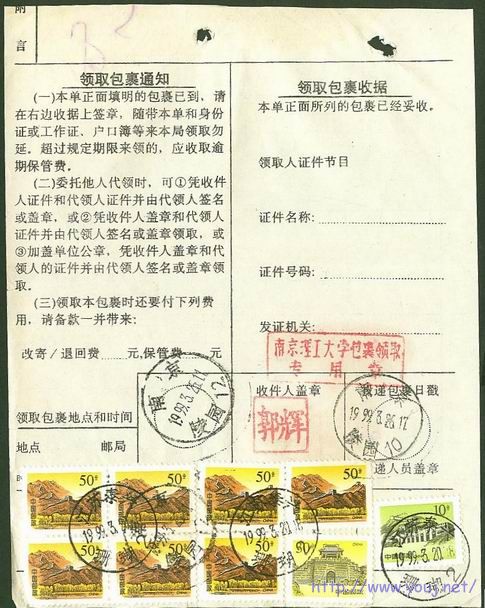 附
言
领取包裹通知
(一)本单正面填明的包裹已到，请
在右边收据上签章，随带本单和身份
证或工作证、户口簿等来本局领取勿
延。超过规定期限来领的，应收取逾
期保管费。
(二)委托他人代领时，可①凭收件
人证件和代领人证件并由代领人签名
或盖章，或②凭收件人盖章和代领人
证件并由代领人签名或盖章领取，或
③加盖单位公章，凭收件人盖章和代
领人的证件并由代领人签名或盖章领
取。
(三)领取本包裹时还要付下列费
用，请备款一并带来：
改寄/退回费 元,保管费 元
领取包裹地点和时间
地点 邮局
领取包裹收据
本单正面所列的包裹已经妥收。
领取人证件节目
证件名称:
证件号码:
发证机关:
南京理工大学包裹领取
专用章
收件人盖章
投递包裹日戳
郭辉
递人员盖章
南京
1999.3.26.17
1999.3.26.17
10
50分 50分 50分 50分
50分 50分 50分
10分
1999.3.20.
1999.3.20.
http://www.youj.net/